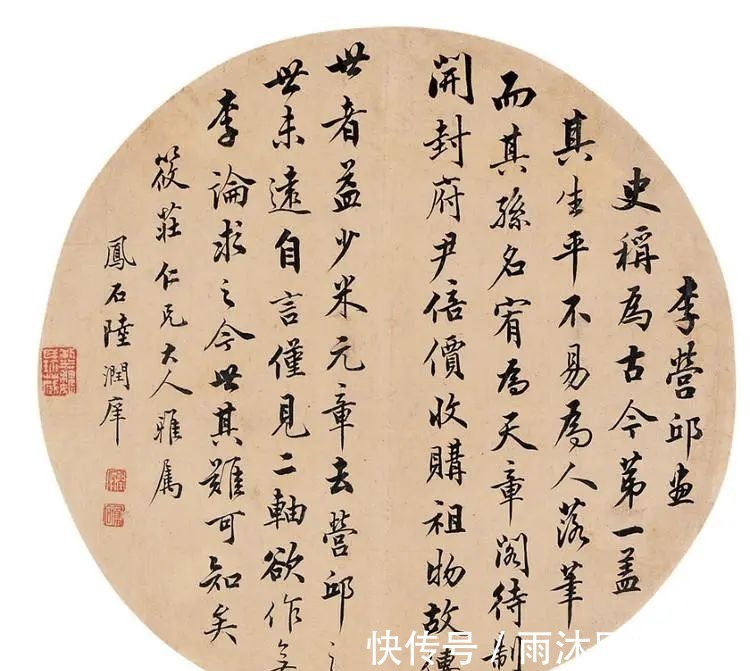 李營邱畫
史稱為古今第一蓋
其生平不易為人落筆
而其孫名宥為天章閣待制
開封府尹倍價收購祖物故
世者益少米元章去營邱
世未遠自言僅見二軸欲作無
李論求之今世其難可知矣
筱莊仁兄大人雅屬
鳳石陸潤庠
快传号/雨沐